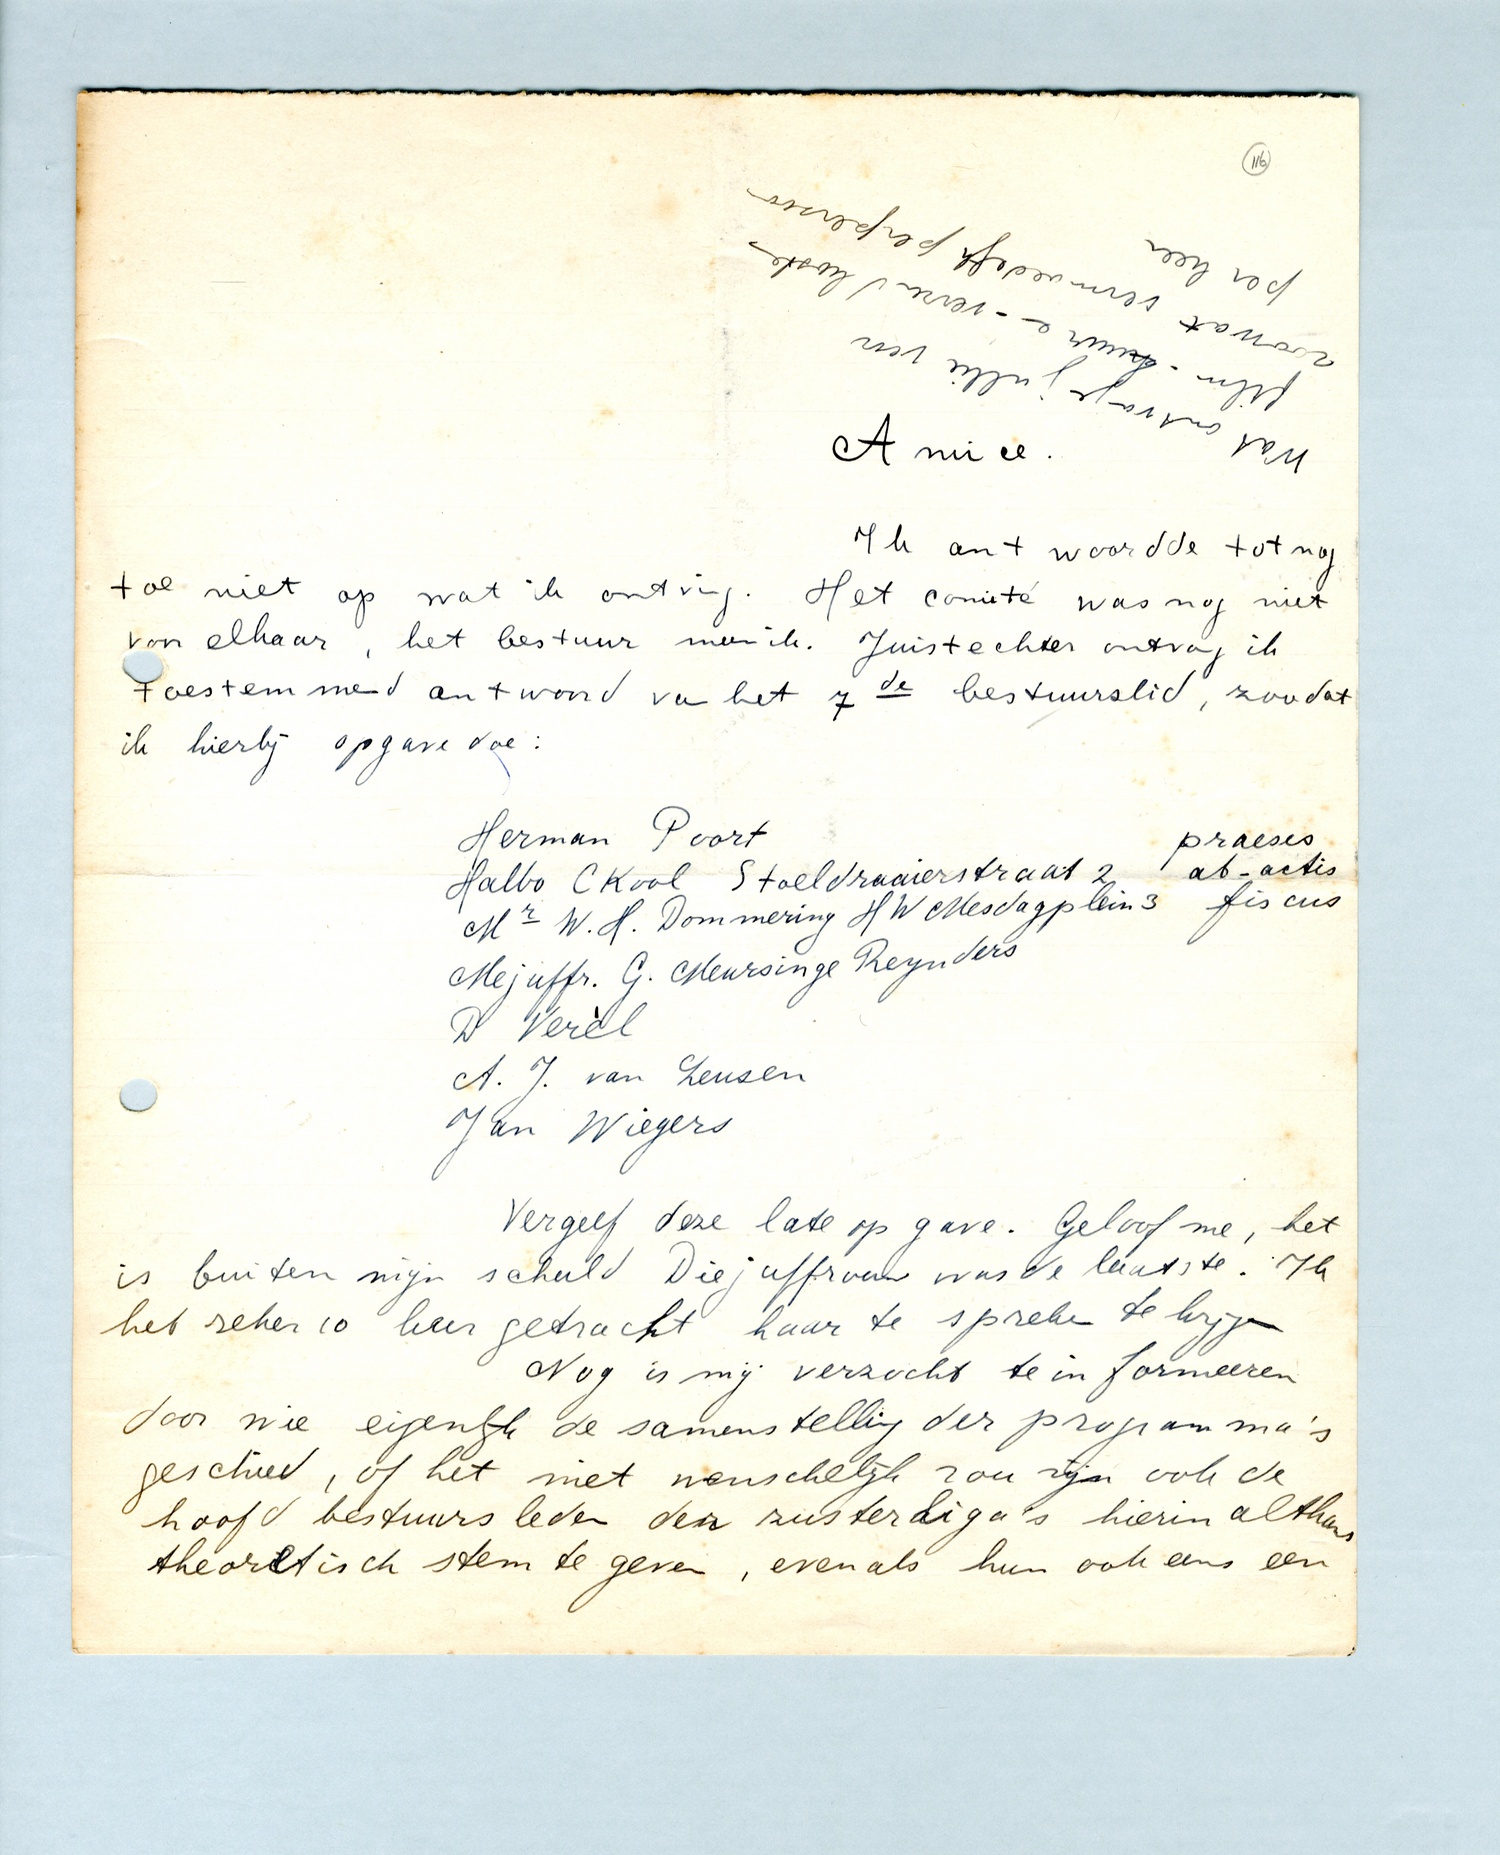 116
Wat ontvang jullie van
film-huur en-verzend kosten
zoowat vermoedelijk per persoon
per keer
Amice.
Ik antwoordde tot nog
toe niet op wat ik ontving. Het comité was nog niet
van elkaar, het bestuur meen ik. Juist echter ontvang ik
toestemmend antwoord van het 7de bestuurslid, zoodat
ik hierbij opgave doe:
Herman Poort praeses
Halbo C Kool Stoeldraaierstraat 2 ab-actis
Mr W. H. Dommering H W Mesdagplein 3 fiscus
Mejuffr. G. Meursinge Reynders
D Verèl
A. J. van Leusen
Jan Wiegers
Vergeef deze late opgave. Geloof me, het
is buiten mijn schuld Die juffrouw was de laatste. Ik
heb zeker 10 keer getracht haar te spreken te krijgen
Nog is mij verzocht te informeeren
door wie eigenlijk de samenstelling der programma's
geschied, of het niet wenschelijk zou zijn ook de
hoofdbestuursleden der zusterliga's hierin althans
theoretisch stem te geven, evenals hun ook eens een